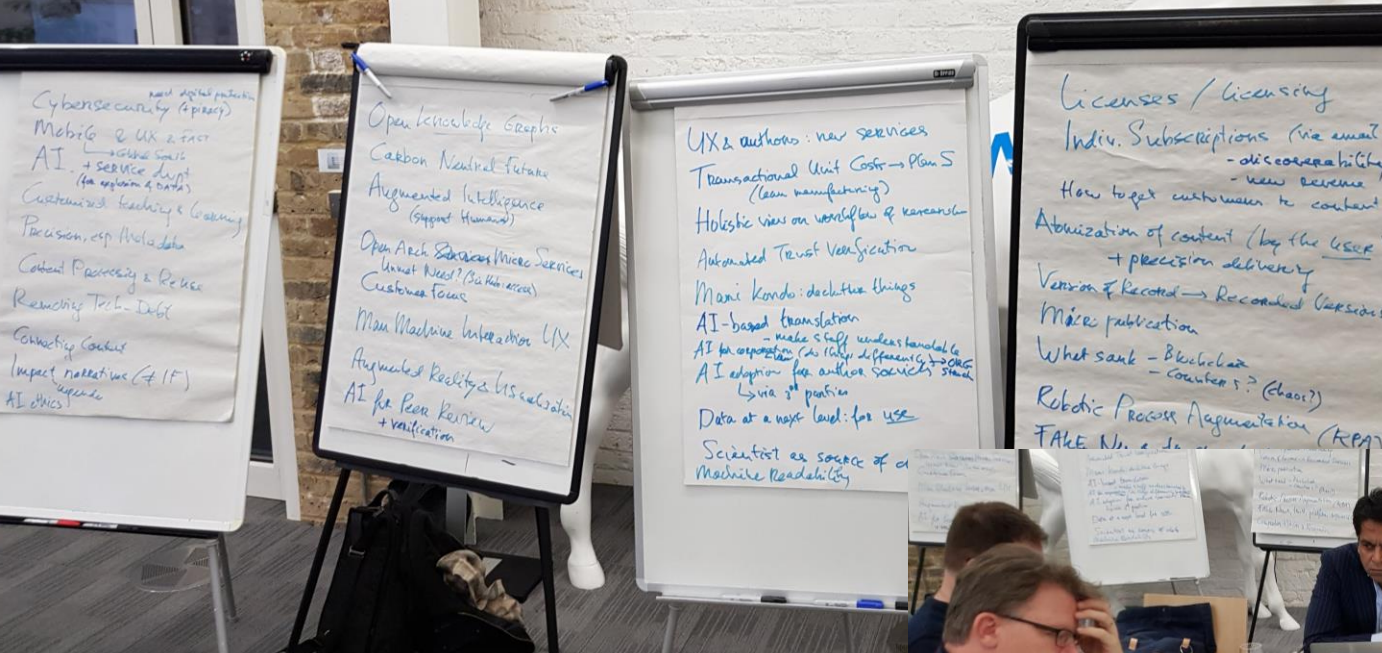 need digital protection
Cybersecurity (+ piracy)
Mobile & UX & FAST
AI + service dvpt
(for explosion of DATA)
Customized teaching & Learning
Precision, esp Metadata
Content Processing & ReUse
Removing Tech-Debt
Connecting Content
Impact narratives (≠ IF)
AI ethics
Open Knowledge Graphs
Carbon Neutral Future
Augmented Intelligence
(support Humans)
Open Arch Services Micro Services
Unmet Need?
Customer Focus
Man Machine Interaction UX
Augmented Reality & Visualization
AI for Peer Review
+ verification
UX & authors: new services
Transactional Unit Costs → Plan S
(lean manufacturing)
Holistic view on workflow of researcher
Automated Trust Verification
Marie Kondo: declutter things
AI-based translation
- make stuff understandable
AI for corporation (do things differently)
AI adoption for author services
↳ via 3rd parties
Data at a next level: for use
Scientist as source of
Machine Readability
Licenses / licensing
Indiv. Subscriptions (via email
- discoverability
- new revenue
How to get customers to content
Atomization of content (by the user
+ precision delivering
Version of Record → Recorded Versions
Micro publication
What sank - Blockchain
- Counter 5? (chaos?)
Robotic Process Augmentation (RPA)
FAKE